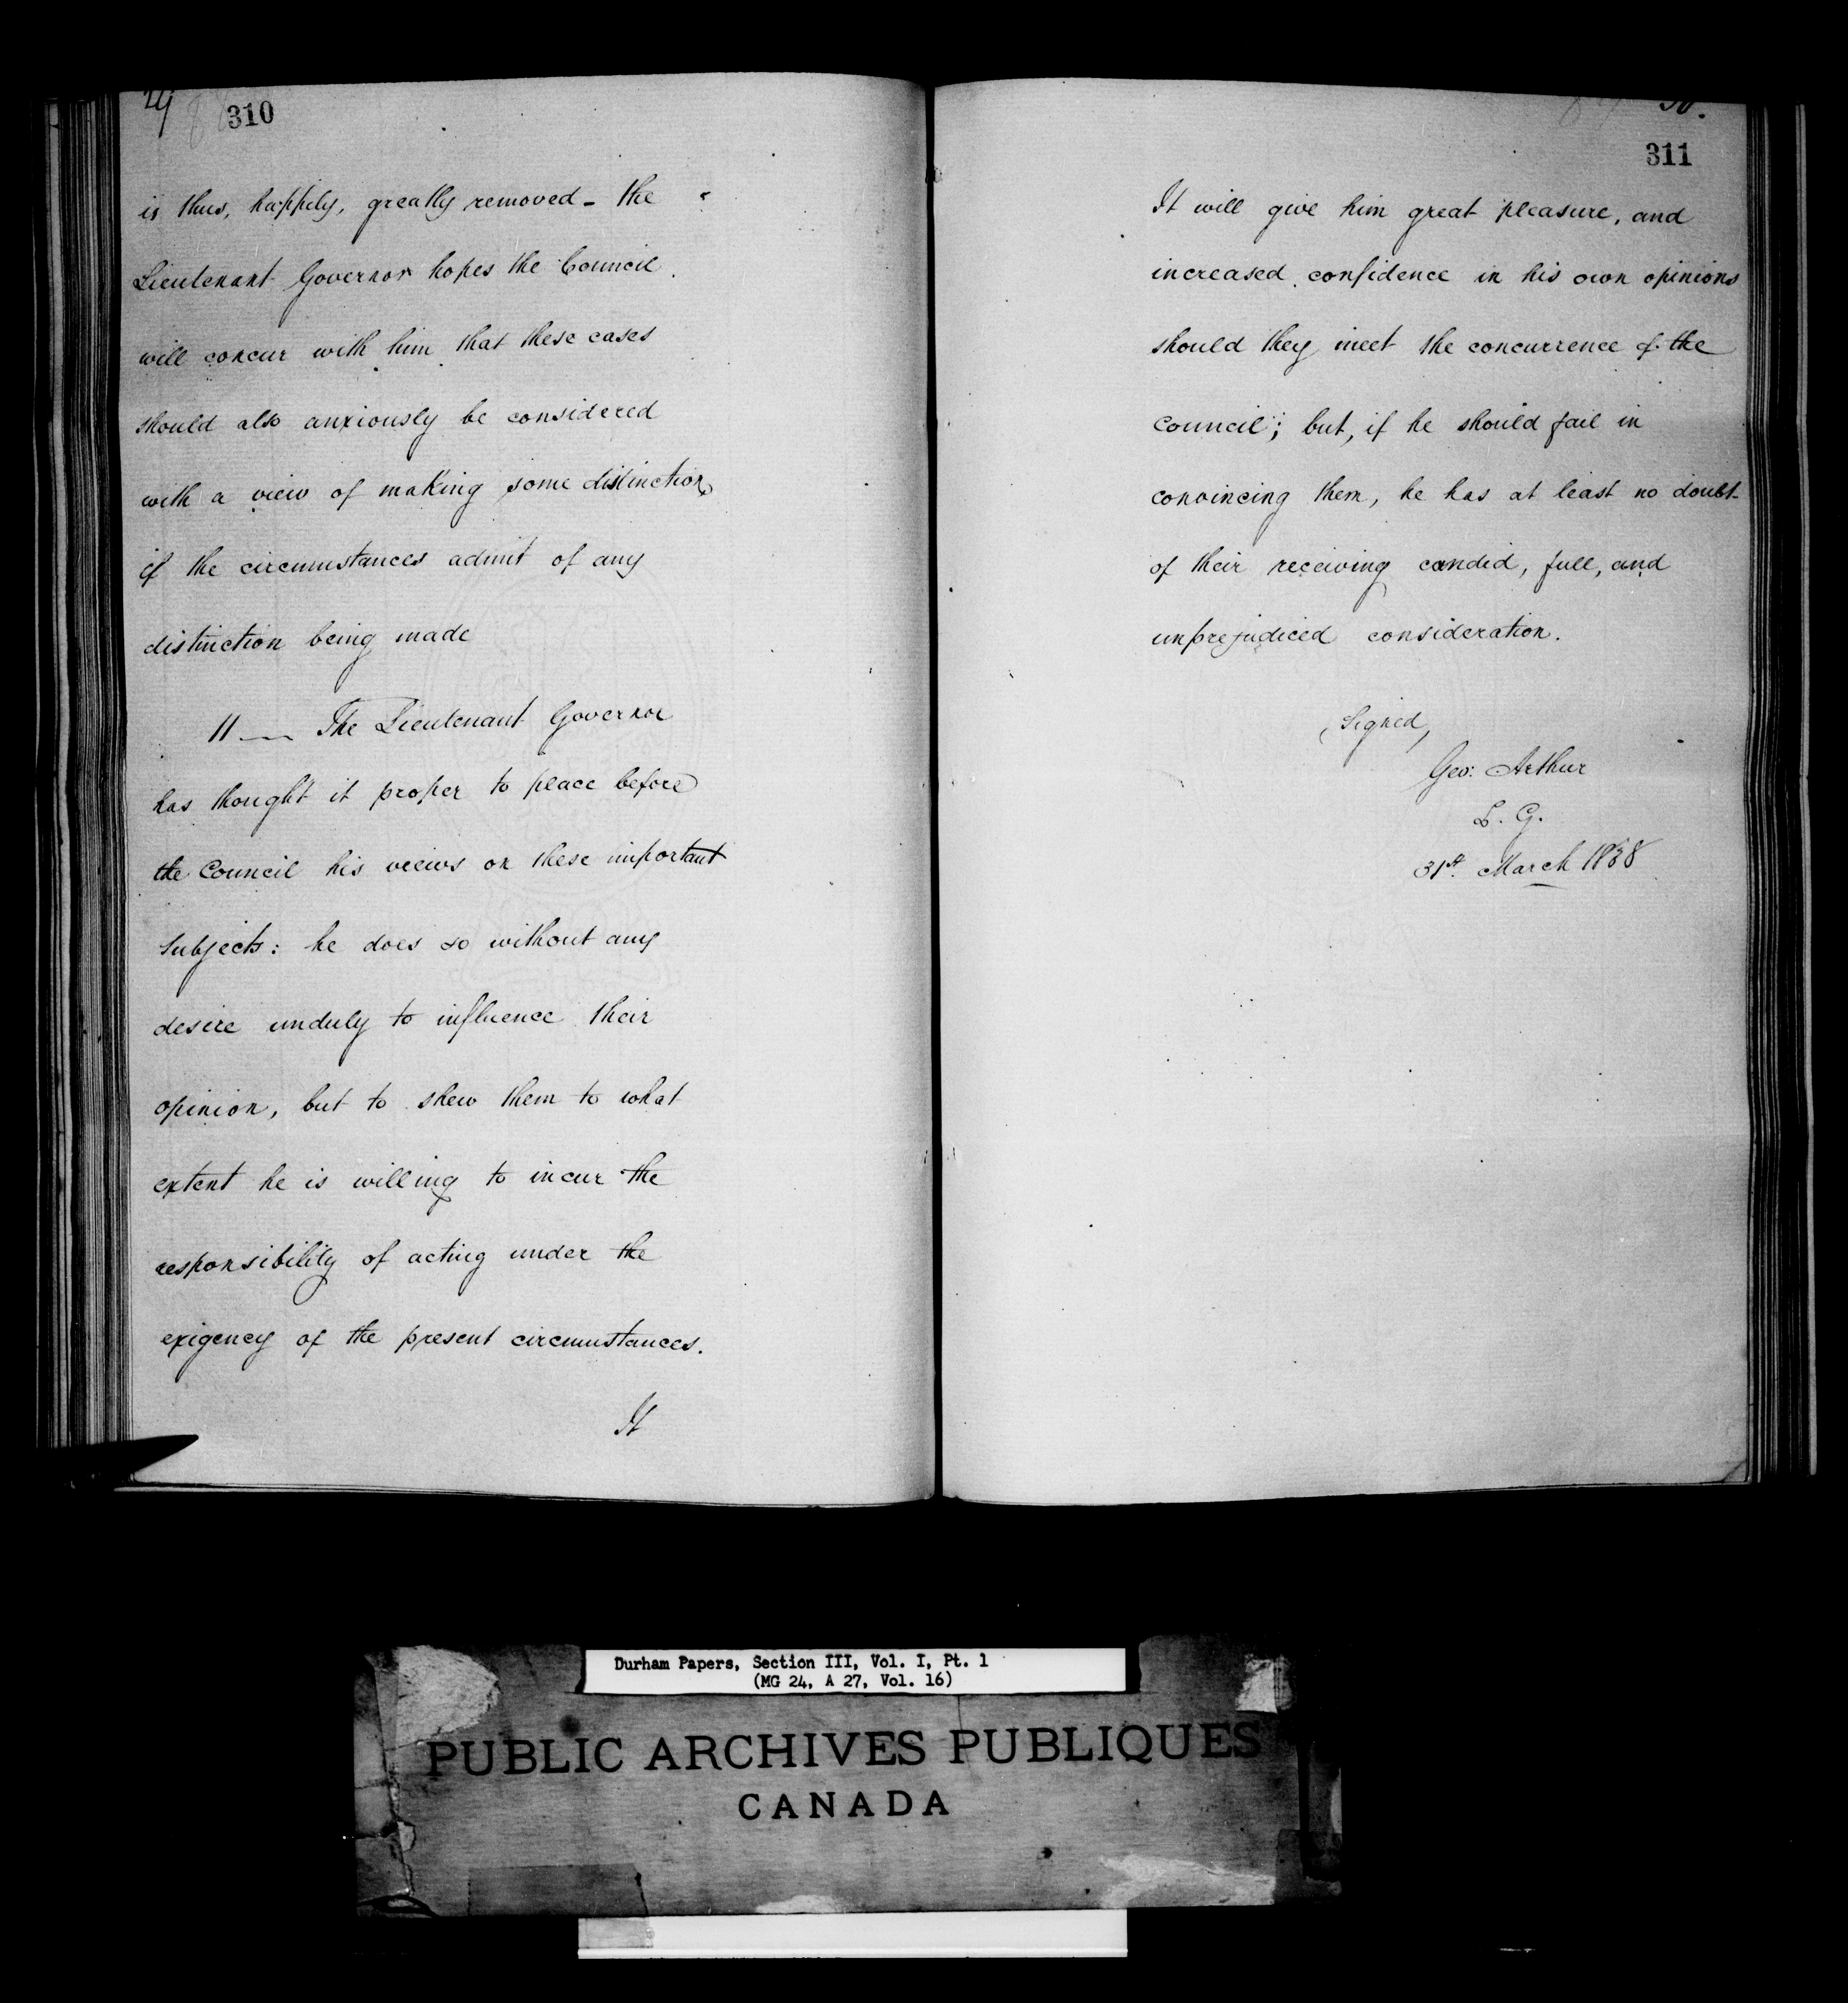 310
is thus, happily, greatly removed – the
Lieutenant Governor hopes the Council
will concur with him that these cases
should also anxiously be considered
with a view of making some distinction,
if the circumstances admit of any
distinction being made
11 — The Lieutenant Governor
has thought it proper to place before
the Council his views on these important
subjects: he does so without any
desire unduly to influence their
opinion, but to shew them to what
extent he is willing to incur the
responsibility of acting under the
exigency of the present circumstances.
It
311
It will give him great pleasure, and
increased confidence in his own opinions
should they meet the concurrence of the
Council; but, if he should fail in
convincing them, he has at least no doubt
of their receiving candid, full, and
unprejudiced consideration.
(Signed)
Geo: Arthur
L. G.
31st March 1838
Durham Papers, Section III, Vol. I, Pt. 1
(MG 24, A 27, Vol. 16)
PUBLIC ARCHIVES PUBLIQUES
CANADA